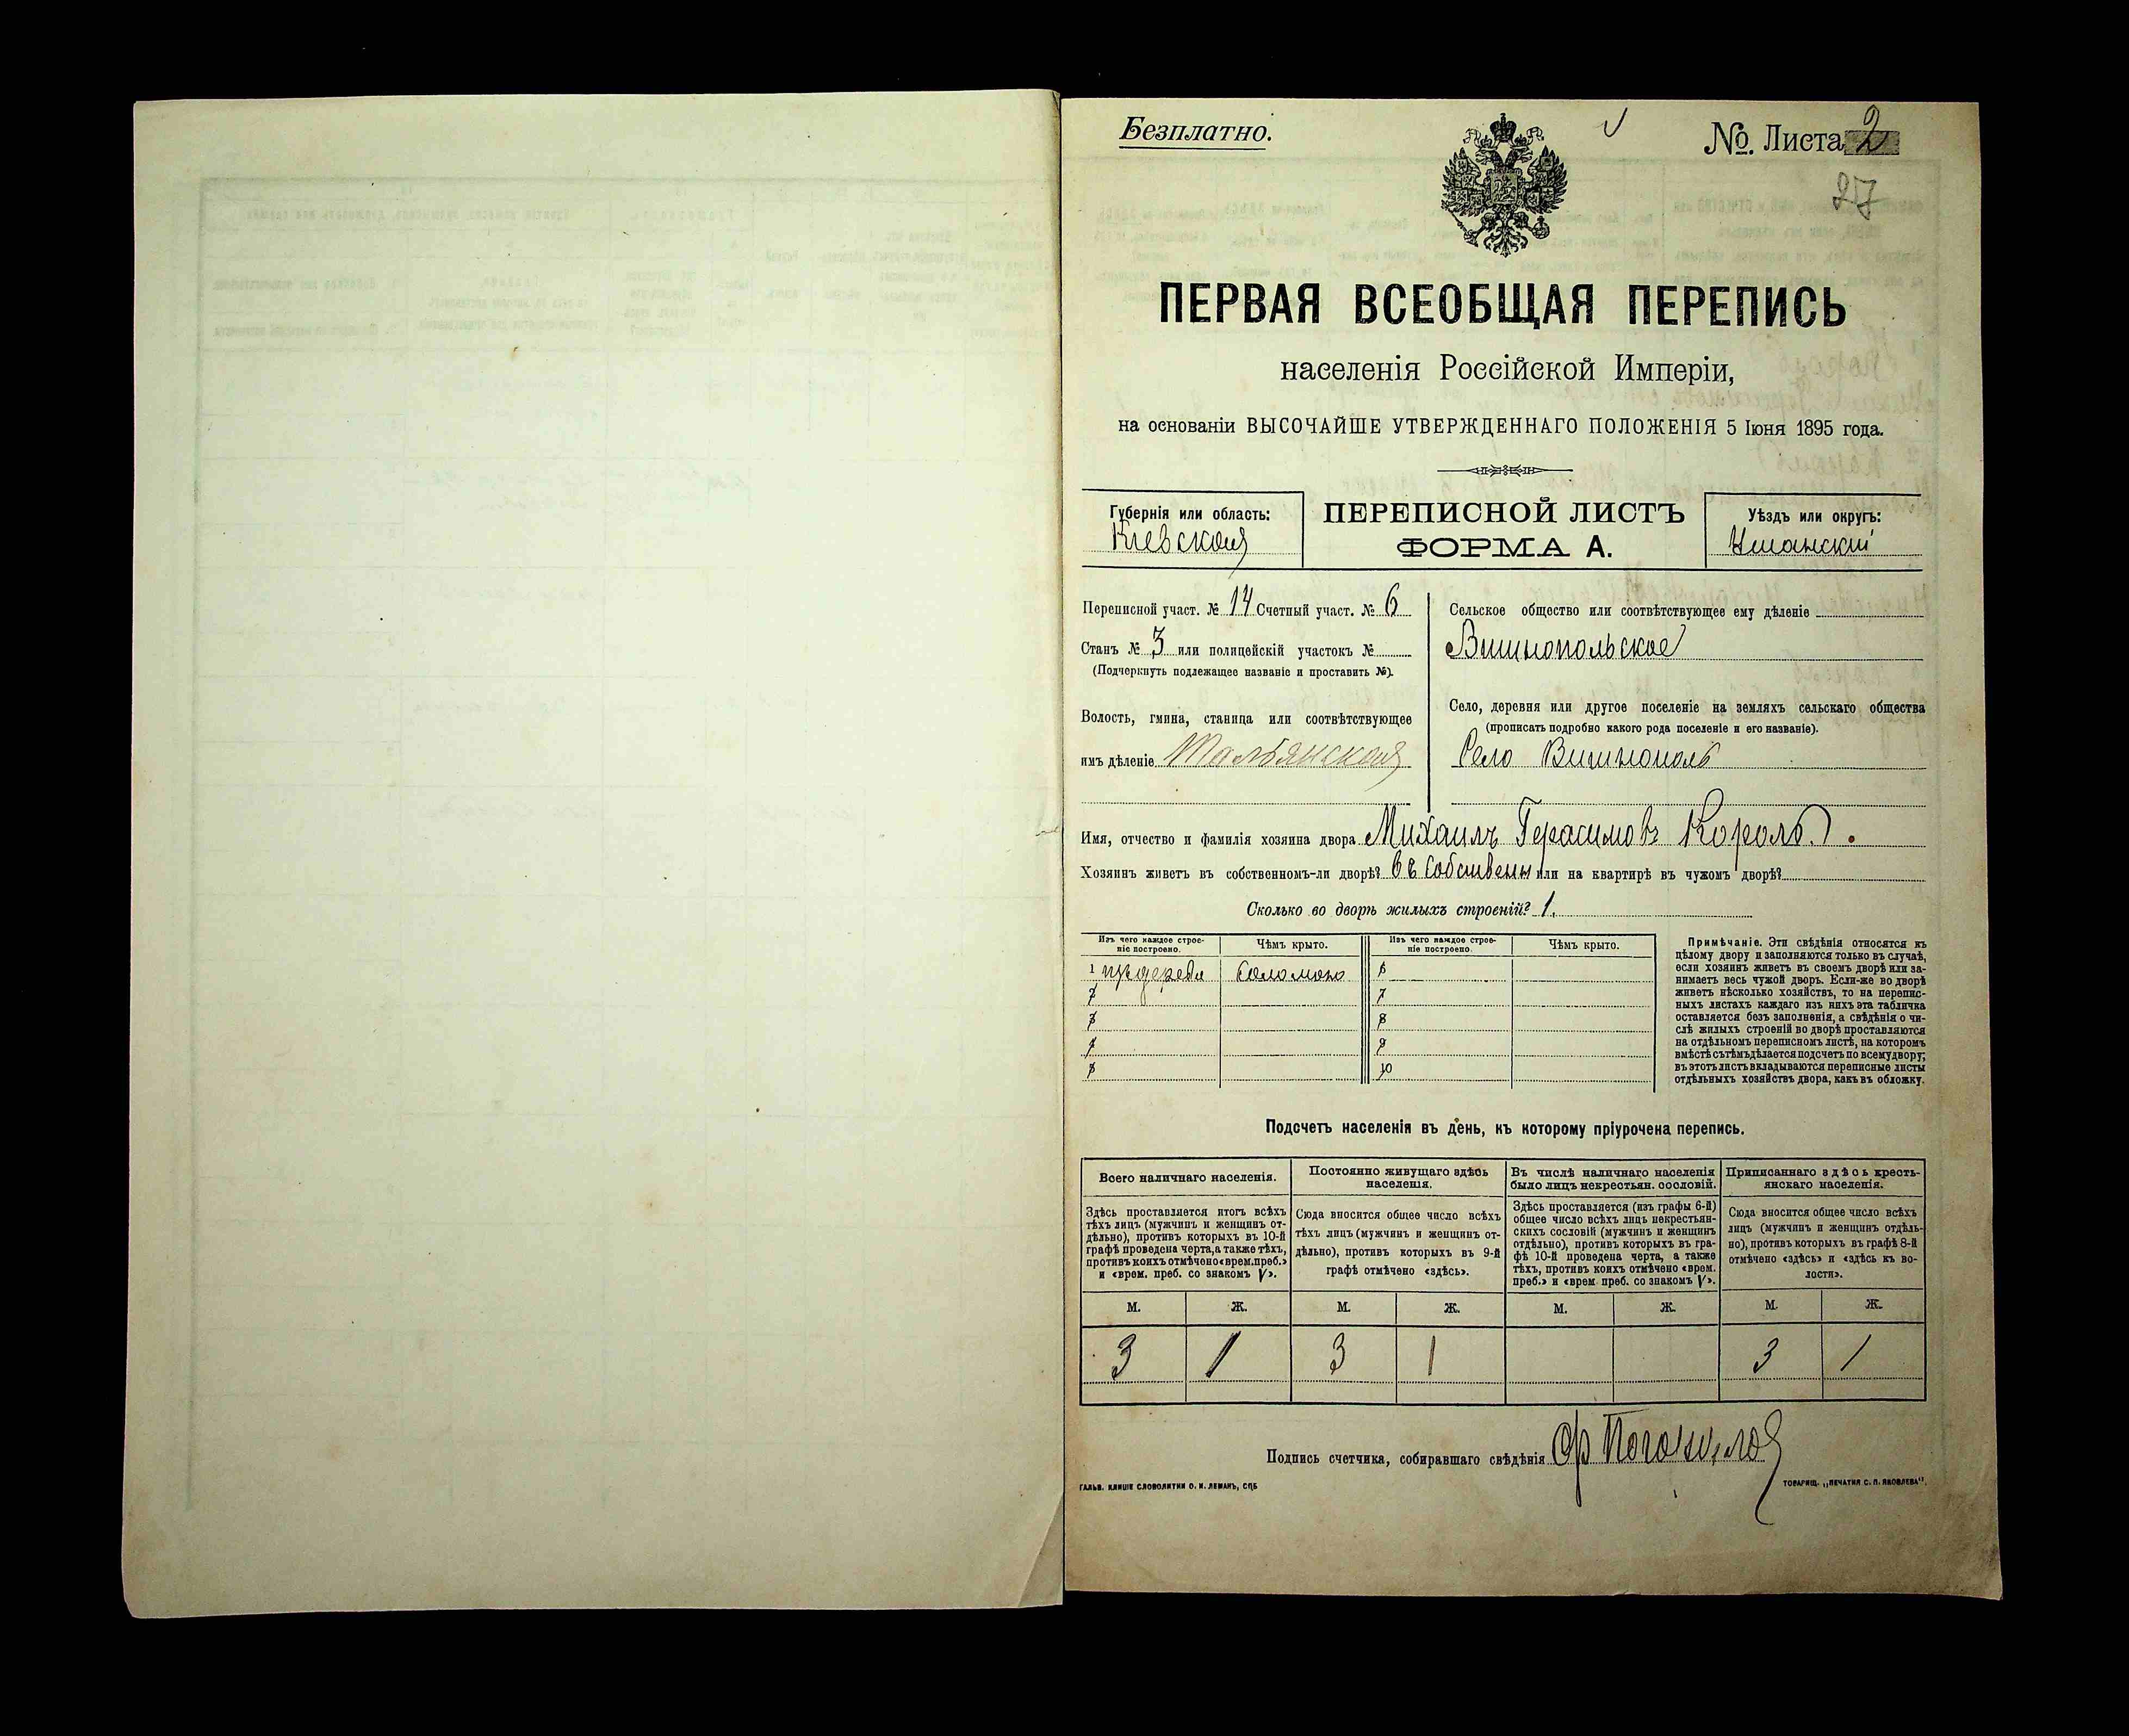 Безплатно.
№. Листа 2
27
ПЕРВАЯ ВСЕОБЩАЯ ПЕРЕПИСЬ
населенія Россійской Имперіи,
на основаніи ВЫСОЧАЙШЕ УТВЕРЖДЕННАГО ПОЛОЖЕНІЯ 5 Іюня 1895 года.
Губернія или область:
Кіевская
ПЕРЕПИСНОЙ ЛИСТЪ
ФОРМА А.
Уѣздъ или округъ:
Уманскій
Переписной участ. № 14 Счетный участ. № 6
Станъ № 3 или полицейскій участокъ №
(Подчеркнуть подлежащее названіе и проставить №).
Волость, гмина, станица или соотвѣтствующее
имъ дѣленіе Тальянская
Сельское общество или соотвѣтствующее ему дѣленіе
Вишнопольское
Село, деревня или другое поселеніе на земляхъ сельскаго общества
(прописать подробно какого рода поселеніе и его названіе).
Село Вишнополь
Имя, отчество и фамилія хозяина двора Михаилъ Герасимовъ Король.
Хозяинъ живетъ въ собственномъ-ли дворѣ? въ собствены или на квартирѣ въ чужомъ дворѣ?
Сколько во дворѣ жилыхъ строеній? 1.
Изъ чего каждое строе-
ніе построено.
Чѣмъ крыто.
Изъ чего каждое строе-
ніе построено.
Чѣмъ крыто.
1 изъ дерева Соломою 6
2 7
3 8
4 9
5 10
Примѣчаніе. Эти свѣдѣнія относятся къ
цѣлому двору и заполняются только въ случаѣ,
если хозяинъ живетъ въ своемъ дворѣ или за-
нимаетъ весь чужой дворъ. Если-же во дворѣ
живетъ нѣсколько хозяйствъ, то на перепис-
ныхъ листахъ каждаго изъ нихъ эта табличка
оставляется безъ заполненія, а свѣдѣнія о чи-
слѣ жилыхъ строеній во дворѣ проставляются
на отдѣльномъ переписномъ листѣ, на которомъ
вмѣстѣ съ тѣмъ дѣлается подсчетъ по всему двору;
въ этотъ листъ вкладываются переписные листы
отдѣльныхъ хозяйствъ двора, какъ въ обложку.
Подсчетъ населенія въ день, къ которому пріурочена перепись.
Всего наличнаго населенія.
Здѣсь проставляется итогъ всѣхъ
тѣхъ лицъ (мужчинъ и женщинъ от-
дѣльно), противъ которыхъ въ 10-й
графѣ проведена черта, а также тѣхъ,
противъ коихъ отмѣчено «врем. преб.»
и «врем. преб. со знакомъ V».
Постоянно живущаго здѣсь
населенія.
Сюда вносится общее число всѣхъ
тѣхъ лицъ (мужчинъ и женщинъ от-
дѣльно), противъ которыхъ въ 9-й
графѣ отмѣчено «здѣсь».
Въ числѣ наличнаго населенія
было лицъ некрестьян. сословій.
Здѣсь проставляется (изъ графы 6-й)
общее число всѣхъ лицъ некрестьян-
скихъ сословій (мужчинъ и женщинъ
отдѣльно), противъ которыхъ въ гра-
фѣ 10-й проведена черта, а также
тѣхъ, противъ коихъ отмѣчено «врем.
преб.» и «врем преб. со знакомъ V».
Приписаннаго здѣсь кресть-
янскаго населенія.
Сюда вносится общее число всѣхъ
лицъ (мужчинъ и женщинъ отдѣль-
но), противъ которыхъ въ графѣ 8-й
отмѣчено «здѣсь» и «здѣсь къ во-
лости».
М. Ж. М. Ж. М. Ж. М. Ж.
3 1 3 1 3 1
Подпись счетчика, собиравшаго свѣдѣнія
ГАЛЬВ. КЛИШЕ СЛОВОЛИТНИ О. И. ЛЕМАНЪ, СПБ
ТОВАРИЩ. „ПЕЧАТНЯ С. П. ЯКОВЛЕВА".